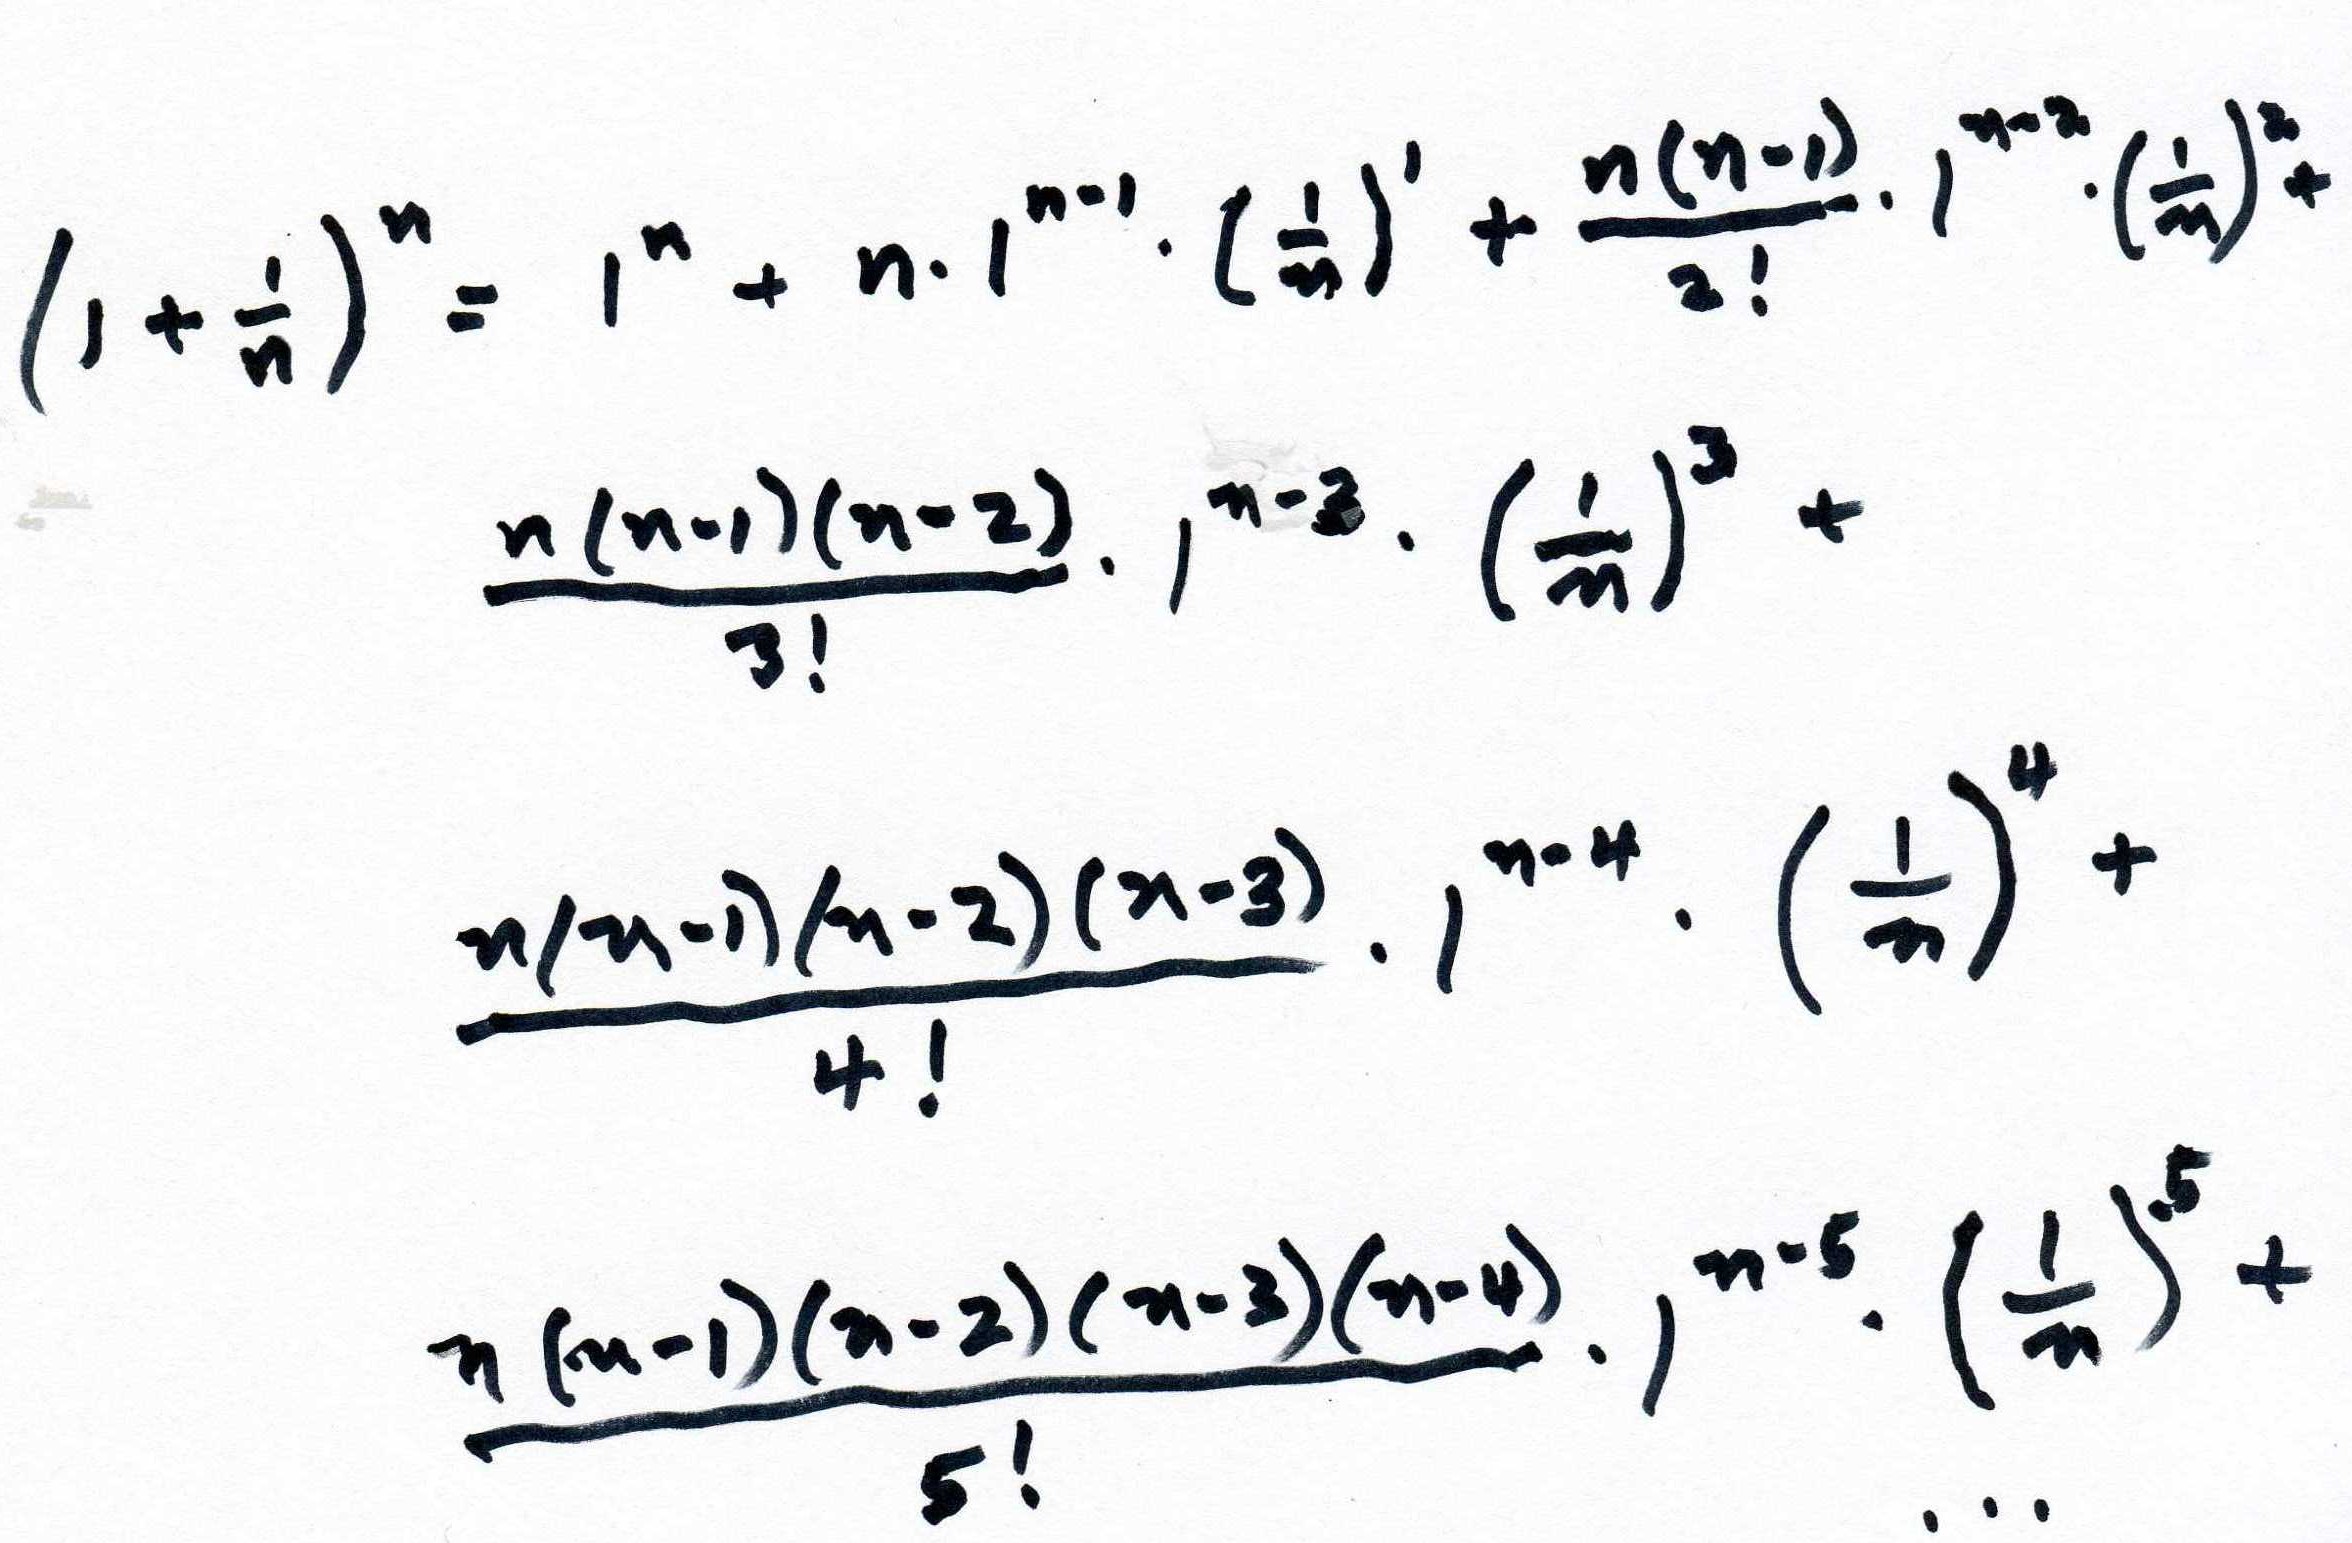 (1 + 1/n)^n = 1^n + n · 1^(n-1) · (1/n)^1 + n(n-1)/2! · 1^(n-2) · (1/n)^2 +
n(n-1)(n-2)/3! · 1^(n-3) · (1/n)^3 +
n(n-1)(n-2)(n-3)/4! · 1^(n-4) · (1/n)^4 +
n(n-1)(n-2)(n-3)(n-4)/5! · 1^(n-5) · (1/n)^5 +
...